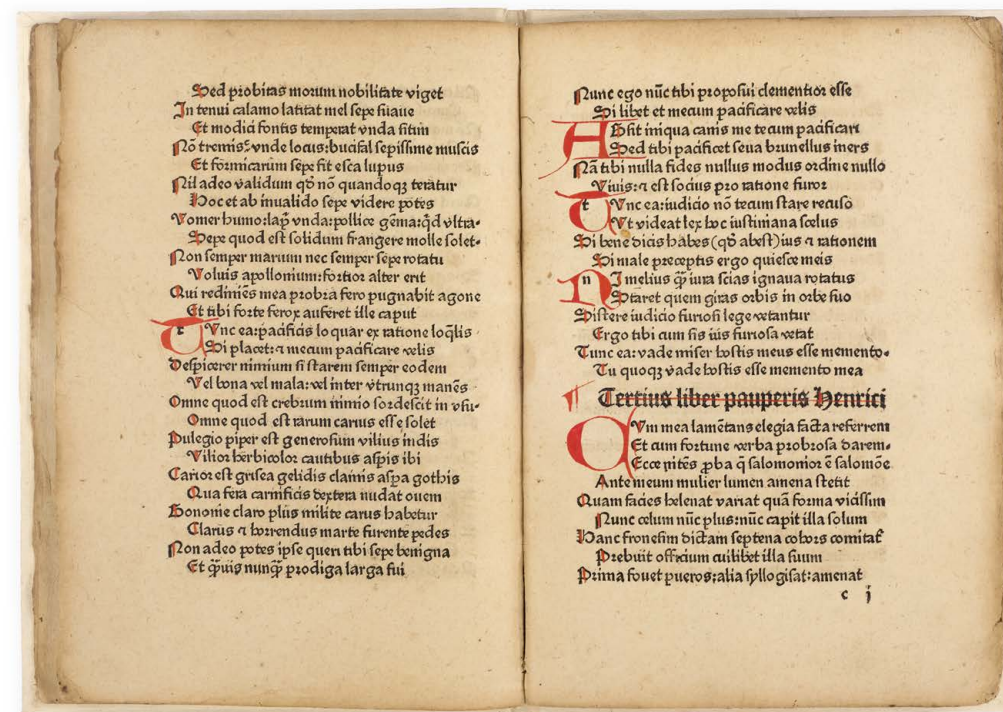 Sed probitas morum nobilitate viget
In tenui calamo latitat mel sepe suaue
Et modici fontis temperat vnda sitim
Nō tremis: vnde locus: bucifal sepissime muscis
Et formicarum sepe fit esca lupus
Nil adeo validum qđ nō quandoqꝫ teratur
Hoc et ab inualido sepe videre potes
Vomer humo: lapis vnda: pollice gēma: qd vltra.
Sepe quod est solidum frangere molle solet.
Non semper marium nec semper sepe rotatu
Voluis apollonium: fortior alter erit
Qui redimiēs mea probra fero pugnabit agone
Et tibi forte ferox auferet ille caput
Tvnc ea: pacificis loquar ex ratione loq̄lis
Si placet: ⁊ mecum pacificare velis
Despicerer nimium si starem semper eodem
Vel bona vel mala: vel inter vtrunqꝫ manēs
Omne quod est crebrum nimio sordescit in vsu.
Omne quod est rarum carius esse solet
Pulegio piper est generosum vilius indis
Vilior herbicolor cautibus aspis ibi
Carior est grisea gelidis clamis aspa gothis
Qua fera carnificis dextera nudat ouem
Bononie claro plus milite carus habetur
Clarus ⁊ horrendus marte furente pedes
Non adeo potes ipse queri tibi sepe benigna
Et q̄uis nunq̄ prodiga larga fui
Nunc ego nūc tibi proposui clementior esse
Si libet et mecum pacificare velis
Absit iniqua canis me tecum pacificari
Sed tibi pacificet seua brunellus iners
Nā tibi nulla fides nullus modus ordine nullo
Viuis: ⁊ est socius pro ratione furor
Tvnc ea: iudicio nō tecum stare recuso
Vt videat lex hoc iustiniana scelus
Si bene dicis habes (qđ abest) ius ⁊ rationem
Si male preceptis ergo quiesce meis
Ni melius q̄ iura scias ignaua rotatus
Staret quem giras orbis in orbe suo
Sistere iudicio furiosi lege vetantur
Ergo tibi cum sis iis furiosa vetat
Tunc ea: vade miser hostis meus esse memento.
Tu quoqꝫ vade hostis esse memento mea
¶ Tertius liber pauperis Henrici
QVm mea lamētans elegia facta referrem
Et cum fortune verba probrosa darem.
Ecce nitēs ꝓba q̄ salomonior ē salomōe
Ante meum mulier lumen amena stetit
Quam facies helenat variat quā forma vicissim
Nunc celum nūc plus: nūc capit illa solum
Hanc fronesim dictam septena cohors comitat̄
Prebuit officium cuilibet illa suum
Prima fouet pueros: alia syllogisat: amenat
c j